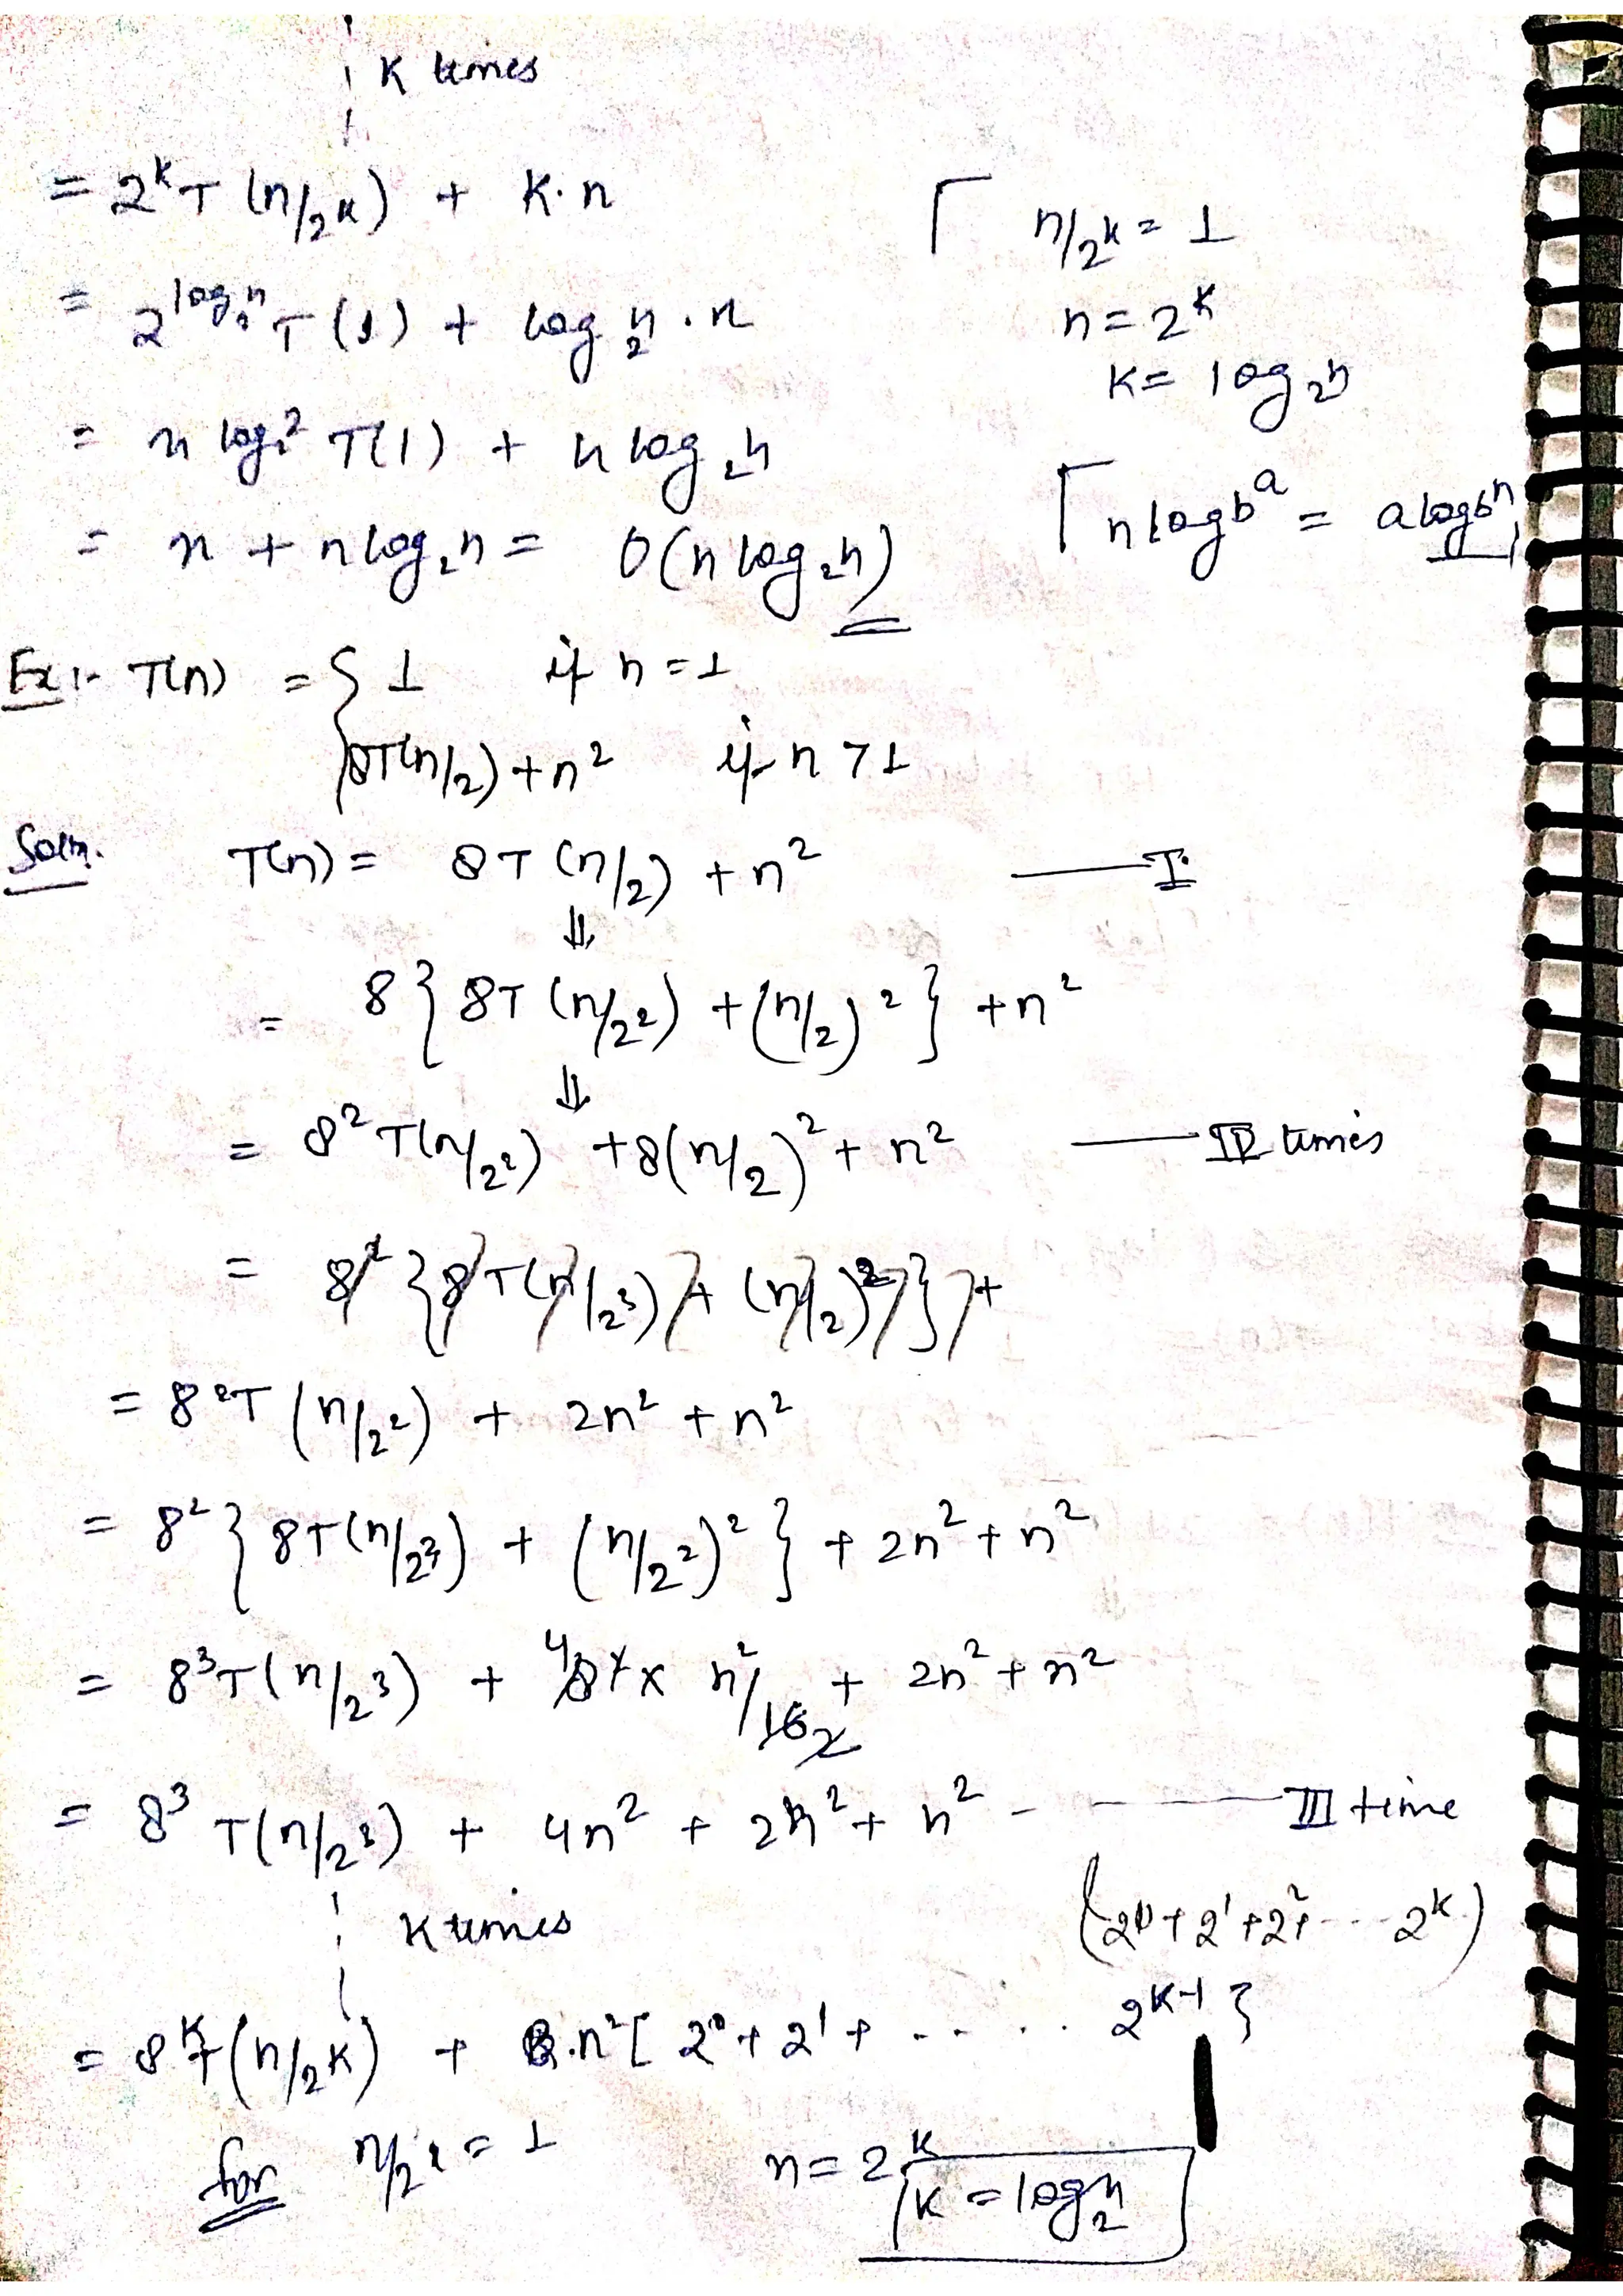 K times
= 2^k T (n/2^k) + K·n
⌈ n/2^k = 1
= 2^{log_2 n} T (1) + log_2 n · n
n = 2^k
k = log_2 n
= n^{log_2 2} T(1) + n log_2 n
⌈ n^{log_b a} = a^{log_b n}
= n + n log_2 n = O(n log_2 n)
Ex:- T(n) = { 1 if n = 1
8T(n/2) + n² if n > 1
Soln. T(n) = 8T (n/2) + n² —— I
⇓
= 8 { 8T (n/2²) + (n/2)² } + n²
⇓
= 8² T(n/2²) + 8(n/2)² + n² —— II times
= 8² { 8T(n/2³) + (n/2)² } +
= 8² T (n/2²) + 2n² + n²
= 8² { 8T(n/2³) + (n/2²)² } + 2n² + n²
= 8³ T(n/2³) + 4 8² × n²/16 2 + 2n² + n²
= 8³ T(n/2³) + 4n² + 2n² + n² - - - —— III time
(2⁰ + 2¹ + 2² + ---- 2^k)
K times
= 8^k T(n/2^k) + n² [ 2⁰ + 2¹ + ----- 2^{k-1} }
for n/2^k = 1 n = 2^k
k = log_2 n